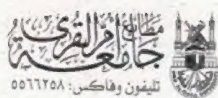 مطابع
جامعة أم القرى
تليفون وفاكس: ٥٥٦٦٢٥٨